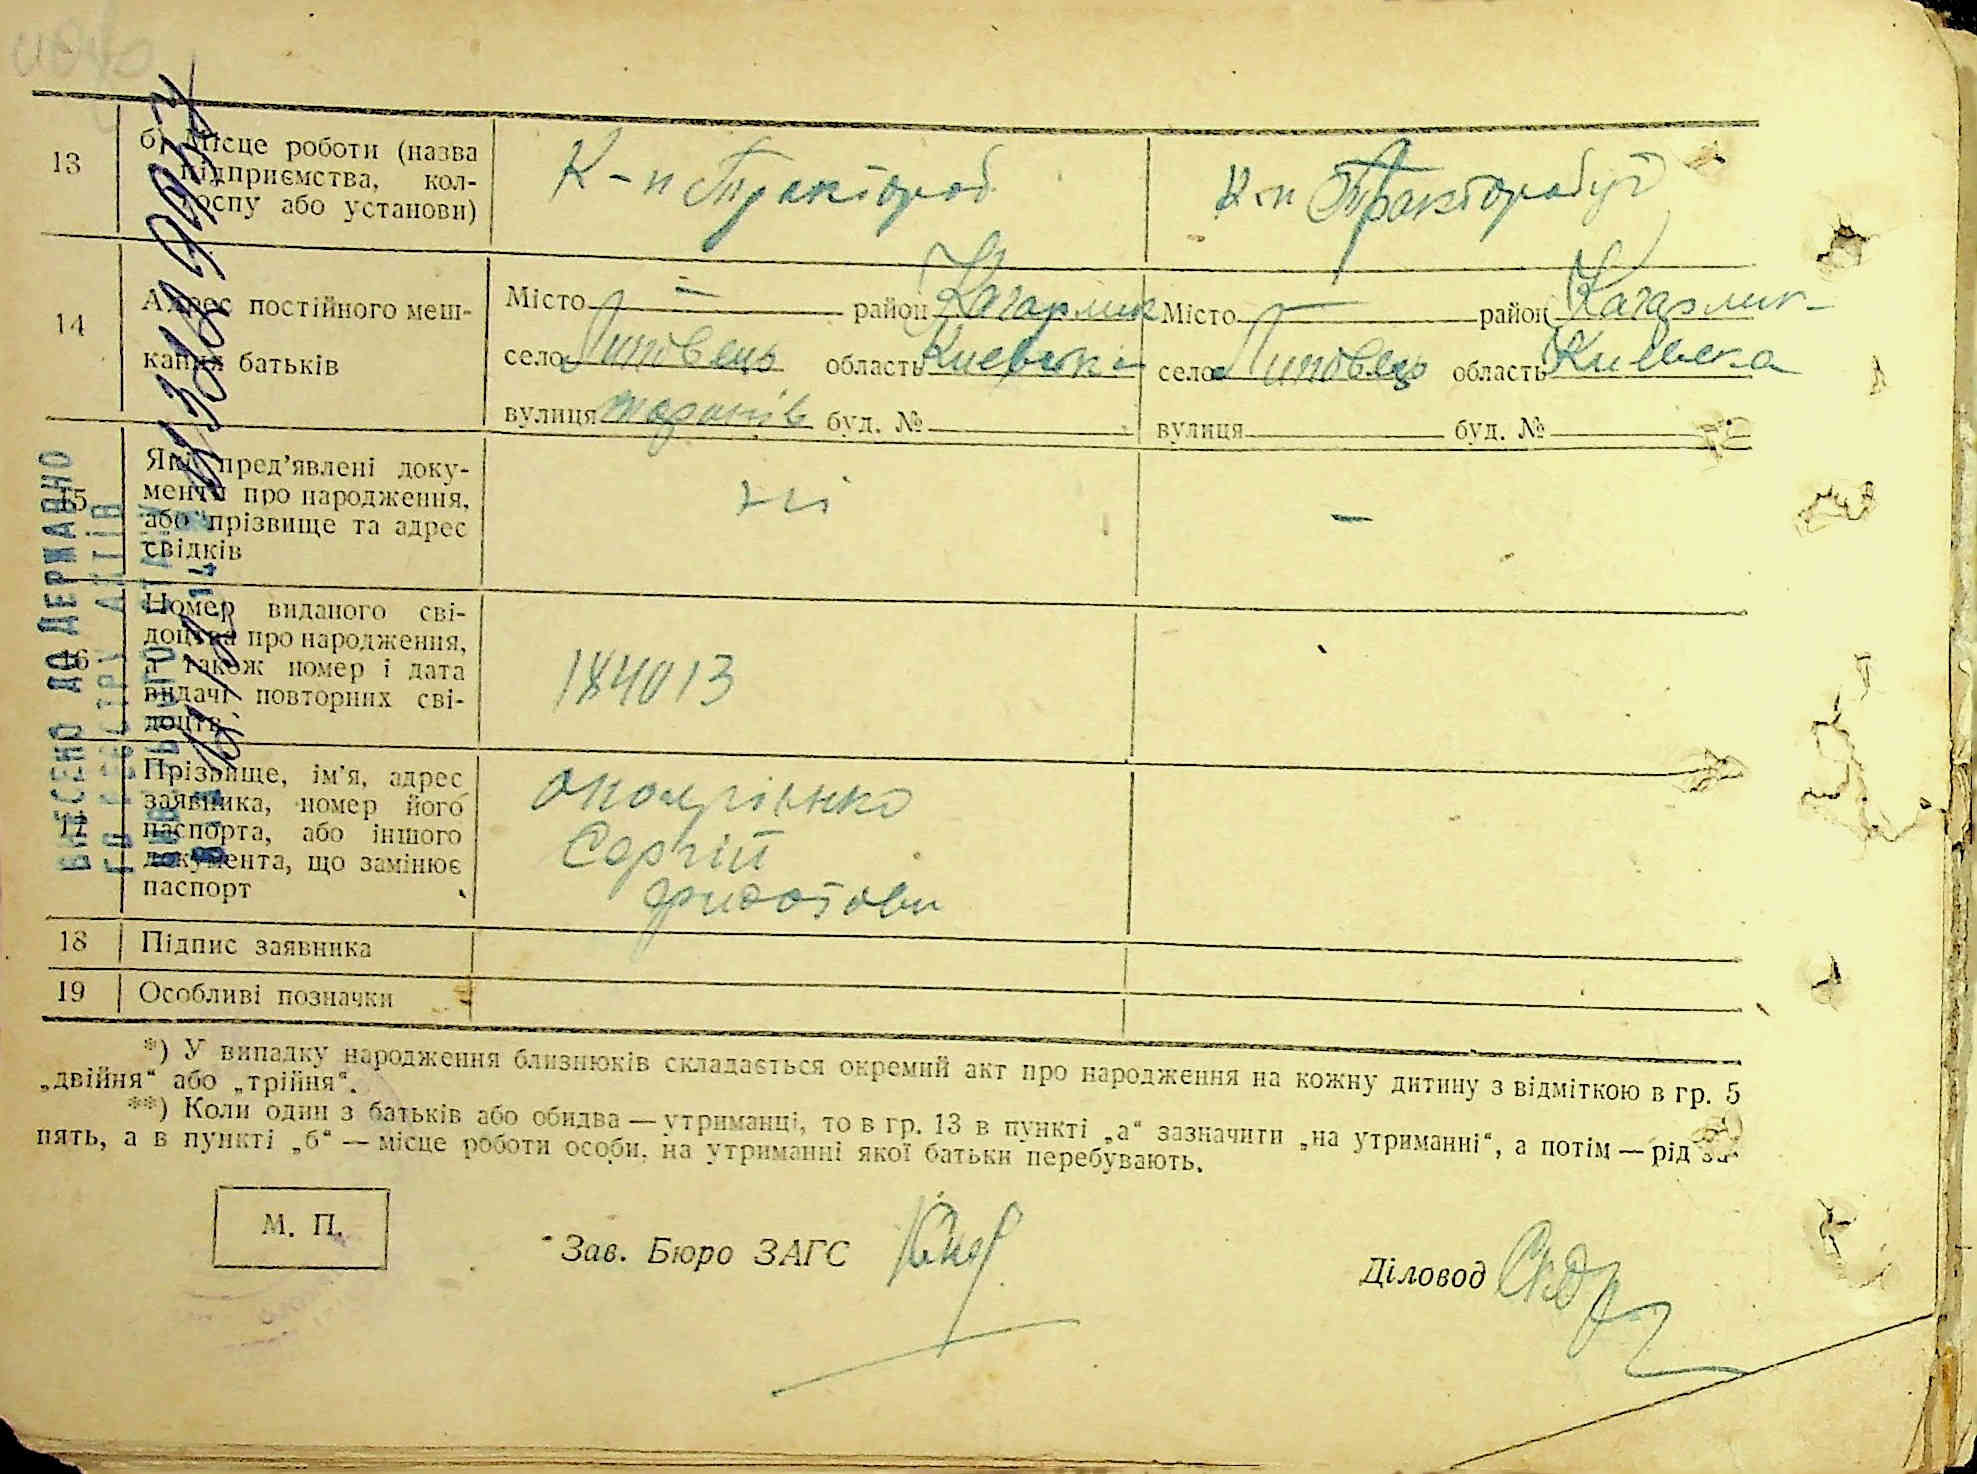 13
б) Місце роботи (назва
підприємства, кол-
госпу або установи)
К-п Трактороб
К-п Тракторобуд
14
Адрес постійного меш-
кання батьків
Місто — район Кагарлик
село Липовець область Київська
вулиця буд. №
Місто — район Кагарлик-
село Липовець область Київська
вулиця буд. №
15
Які пред'явлені доку-
менти про народження,
або прізвище та адрес
свідків
ні
—
16
Номер виданого сві-
доцтва про народження,
а також номер і дата
видачі повторних сві-
доцтв
184013
17
Прізвище, ім'я, адрес
заявника, номер його
паспорта, або іншого
документа, що замінює
паспорт
Сергій
18 Підпис заявника
19 Особливі позначки
*) У випадку народження близнюків складається окремий акт про народження на кожну дитину з відміткою в гр. 5
„двійня“ або „трійня“.
**) Коли один з батьків або обидва — утриманці, то в гр. 13 в пункті „а“ зазначити „на утриманні“, а потім — рід за-
пять, а в пункті „б“ — місце роботи особи, на утриманні якої батьки перебувають.
М. П.
Зав. Бюро ЗАГС
Діловод
ВНЕСЕНО ДО ДЕРЖАВНО
ГО РЕЄСТРУ АКТІВ
ЦИВІЛЬНОГО СТАНУ